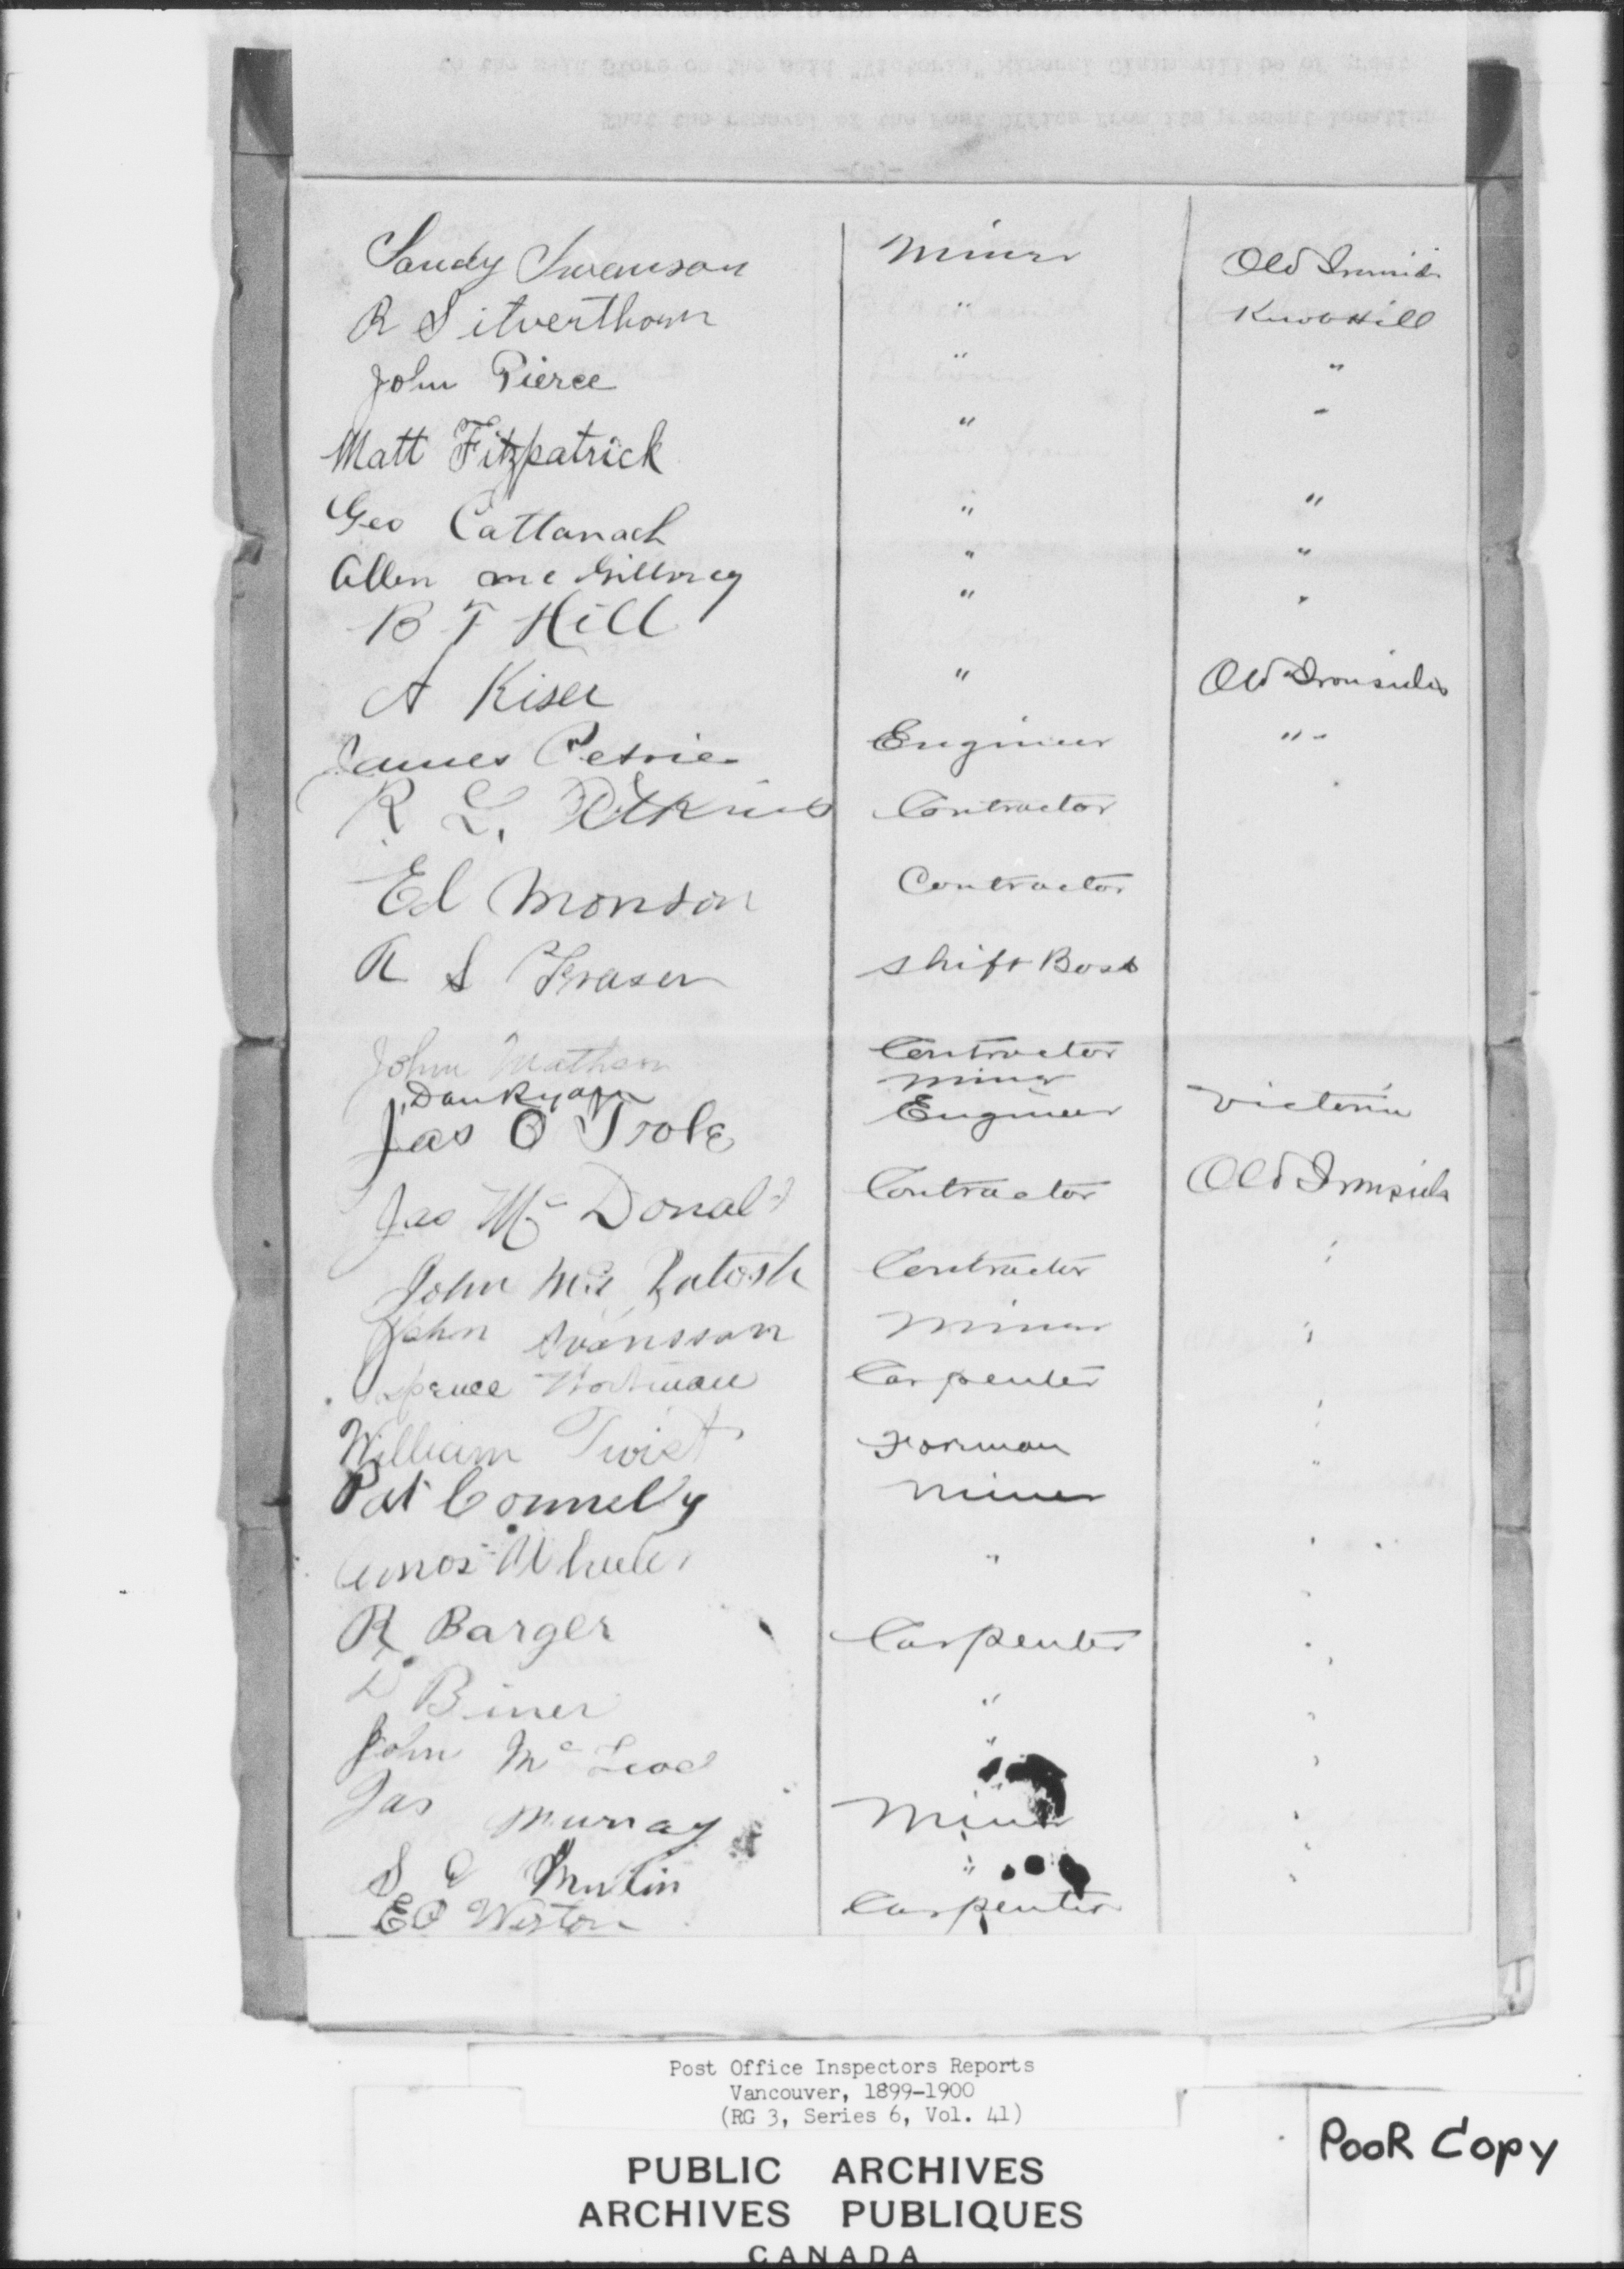 to the said Store on the said "Victoria" Mineral Claim will be of great
That the removal of the Post Office from its present location
Sandy Swanson Miner Old Ironsids
R Silverthorn " Knob Hill
John Pierce " "
Matt Fitzpatrick " "
Geo Cattanach " "
Allen McGillvrey " "
B T Hill " "
A Kiser " Old Ironsides
James Petrie Engineer " "
R L. Contractor
Ed Monson Contractor
R S Fraser Shift Boss
John Mathson Contractor
Dan Ryan Miner
Jas O Toole Engineer Victoria
Jas Mc Donald Contractor Old Ironsids
John Mc Intosh Contractor "
John Svansson Miner "
Spruce Workman Carpenter "
William Twist Forman "
Pat Connelly Miner
Amos Wheeler " "
R Barger Carpenter "
D Biner " "
John Mc Leod " "
Jas Murray Miner "
S "
E O Weston Carpenter "
Post Office Inspectors Reports
Vancouver, 1899-1900
(RG 3, Series 6, Vol. 41)
POOR COPY
PUBLIC ARCHIVES
ARCHIVES PUBLIQUES
CANADA